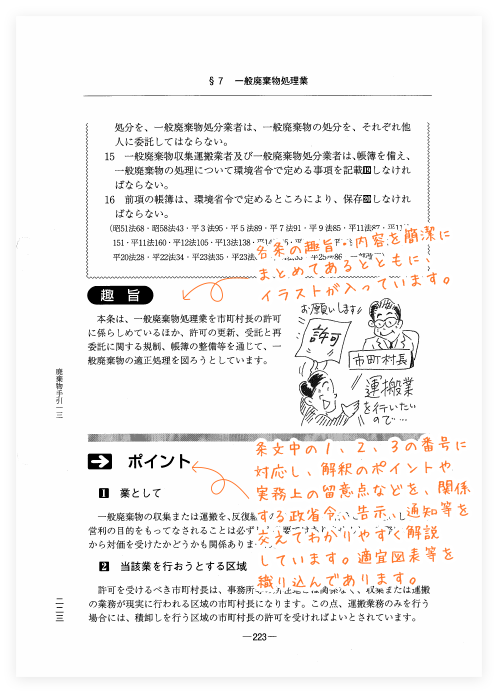 §7 一般廃棄物処理業
処分を、一般廃棄物処分業者は、一般廃棄物の処分を、それぞれ他
人に委託してはならない。
15 一般廃棄物収集運搬業者及び一般廃棄物処分業者は、帳簿を備え、
一般廃棄物の処理について環境省令で定める事項を記載19しなけれ
ばならない。
16 前項の帳簿は、環境省令で定めるところにより、保存20しなけれ
ばならない。
(昭51法68・昭58法43・平3法95・平5法89・平7法91・平9法85・平11法87・平11
151・平11法160・平12法105・平13法138・
平20法28・平22法34・平23法35・平23法
各条の趣旨・内容を簡潔に
まとめてあるとともに、
イラストが入っています。
趣旨
本条は、一般廃棄物処理業を市町村長の許可
に係らしめているほか、許可の更新、受託と再
委託に関する規制、帳簿の整備等を通じて、一
般廃棄物の適正処理を図ろうとしています。
お願いします
許可
市町村長
運搬業
を行いたい
ので…
廃棄物手引一三
ポイント
条文中の1、2、3の番号に
対応し、解釈のポイントや
実務上の留意点などを、関係
する政省令、告示、通知等を
交えてわかりやすく解説
しています。適宜図表等を
織り込んであります。
1 業として
一般廃棄物の収集または運搬を、反復継
営利の目的をもってなされることは必ずし
から対価を受けたかどうかも関係ありま
2 当該業を行おうとする区域
許可を受けるべき市町村長は、事務所等の所在地とは関係なく、収集または運搬
の業務が現実に行われる区域の市町村長になります。この点、運搬業務のみを行う
場合には、積卸しを行う区域の市町村長の許可を受ければよいとされています。
二二三
―223―